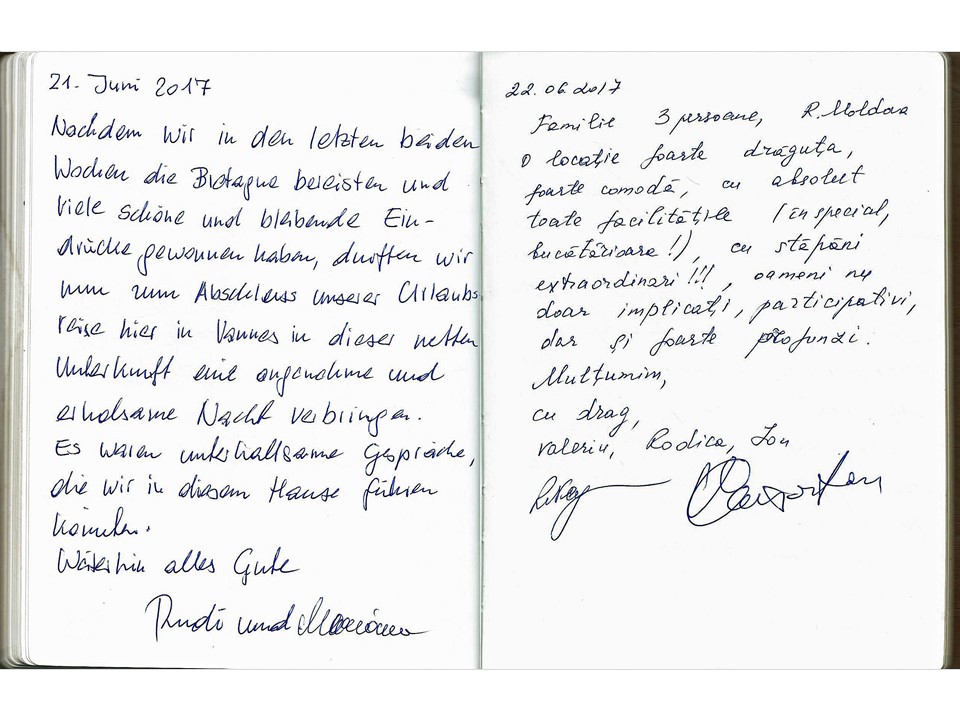 21. Juni 2017
Nachdem wir in den letzten beiden
Wochen die Bretagne bereisten und
viele schöne und bleibende Ein-
drücke gewonnen haben, durften wir
nun zum Abschluss unserer Urlaubs
reise hier in Vannes in dieser netten
Unterkunft eine angenehme und
erholsame Nacht verbringen.
Es waren unterhaltsame Gespräche,
die wir in diesem Hause führen
konnten.
Weiterhin alles Gute
Rudi und
22.06.2017
Familie 3 persoane, R. Moldova
O locație foarte drăguța,
foarte comodă, cu absolut
toate facilitățile (în special,
bucătărioare!), cu stăpâni
extraordinari!!!, oameni nu
doar implicați, participativi,
dar și foarte profunzi.
Mulțumim,
cu drag,
Valeriu, Rodica, Ion